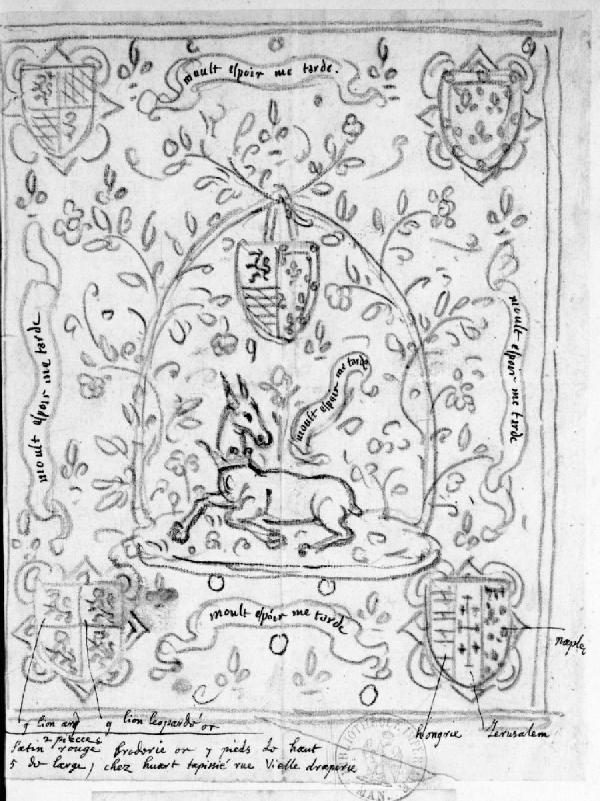 moult espoir me tarde.
moult espoir me tarde
moult espoir me tarde
moult espoir me tarde
moult espoir me tarde
naples
hongrie Jerusalem
q lion arg q lion leopardé or
2 pieces
Satin rouge broderie or 7 pieds de haut
5 de large, chez huart tapissié rue Vielle draperie
MAN.